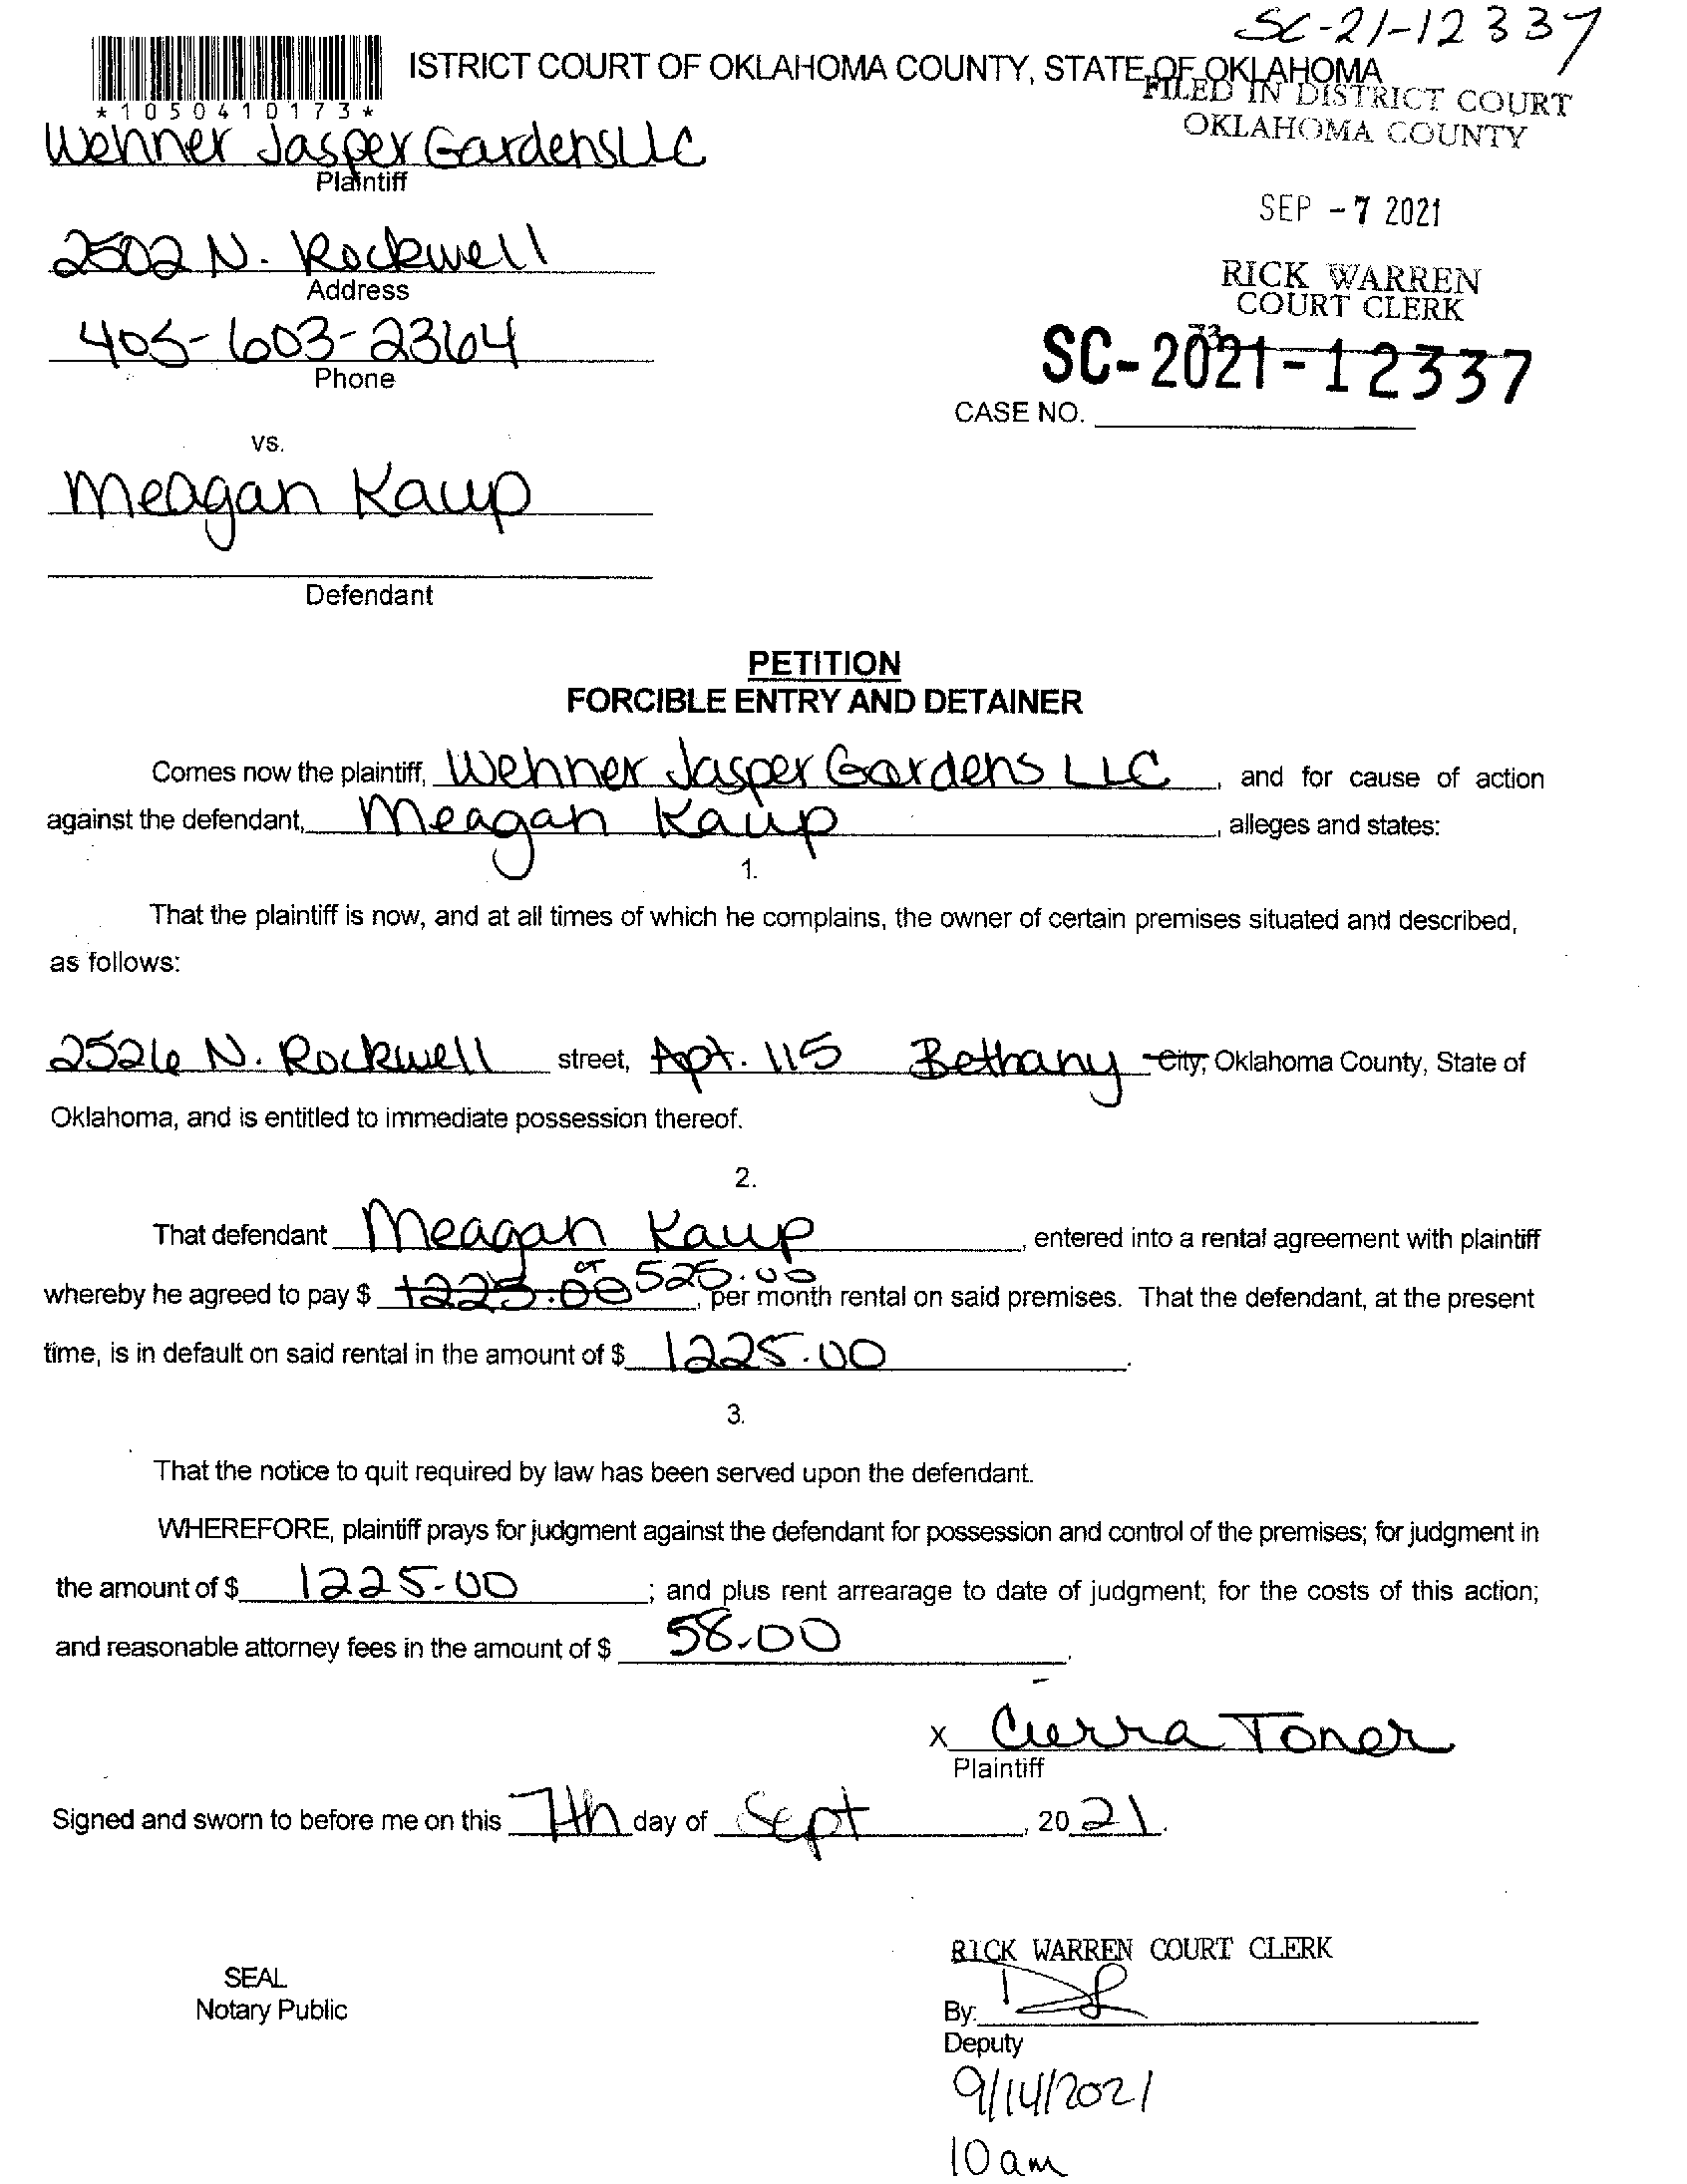 SC-21-12337
ISTRICT COURT OF OKLAHOMA COUNTY, STATE OF OKLAHOMA
*1050410173*
FILED IN DISTRICT COURT
OKLAHOMA COUNTY
Wehner Jasper Gardens LLC
Plaintiff
SEP -7 2021
2502 N. Rockwell
Address
RICK WARREN
COURT CLERK
405-603-2364
Phone
73
SC-2021-12337
CASE NO.
vs.
Meagan Kaup
Defendant
PETITION
FORCIBLE ENTRY AND DETAINER
Comes now the plaintiff, Wehner Jasper Gardens LLC, and for cause of action
against the defendant, Meagan Kaup, alleges and states:
1.
That the plaintiff is now, and at all times of which he complains, the owner of certain premises situated and described,
as follows:
2526 N. Rockwell street, Apt. 115 Bethany City, Oklahoma County, State of
Oklahoma, and is entitled to immediate possession thereof.
2.
That defendant Meagan Kaup, entered into a rental agreement with plaintiff
whereby he agreed to pay $ 1225.00 CT 525.00, per month rental on said premises. That the defendant, at the present
time, is in default on said rental in the amount of $ 1225.00.
3.
That the notice to quit required by law has been served upon the defendant.
WHEREFORE, plaintiff prays for judgment against the defendant for possession and control of the premises; for judgment in
the amount of $ 1225.00; and plus rent arrearage to date of judgment; for the costs of this action;
and reasonable attorney fees in the amount of $ 58.00.
X Cierra Toner
Plaintiff
Signed and sworn to before me on this 7th day of Sept, 2021.
RICK WARREN COURT CLERK
SEAL
Notary Public
By:
Deputy
9/14/2021
10 am